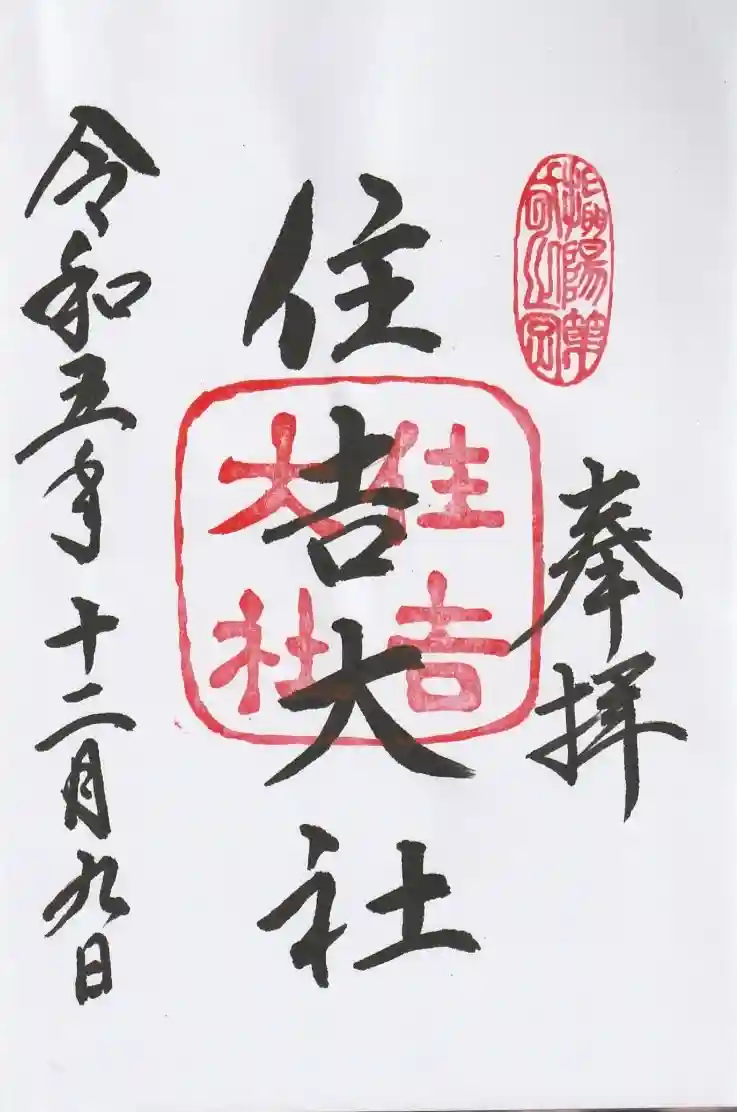 陽第
之宮
奉拝
住吉大社
住吉
大社
令和五年十二月九日